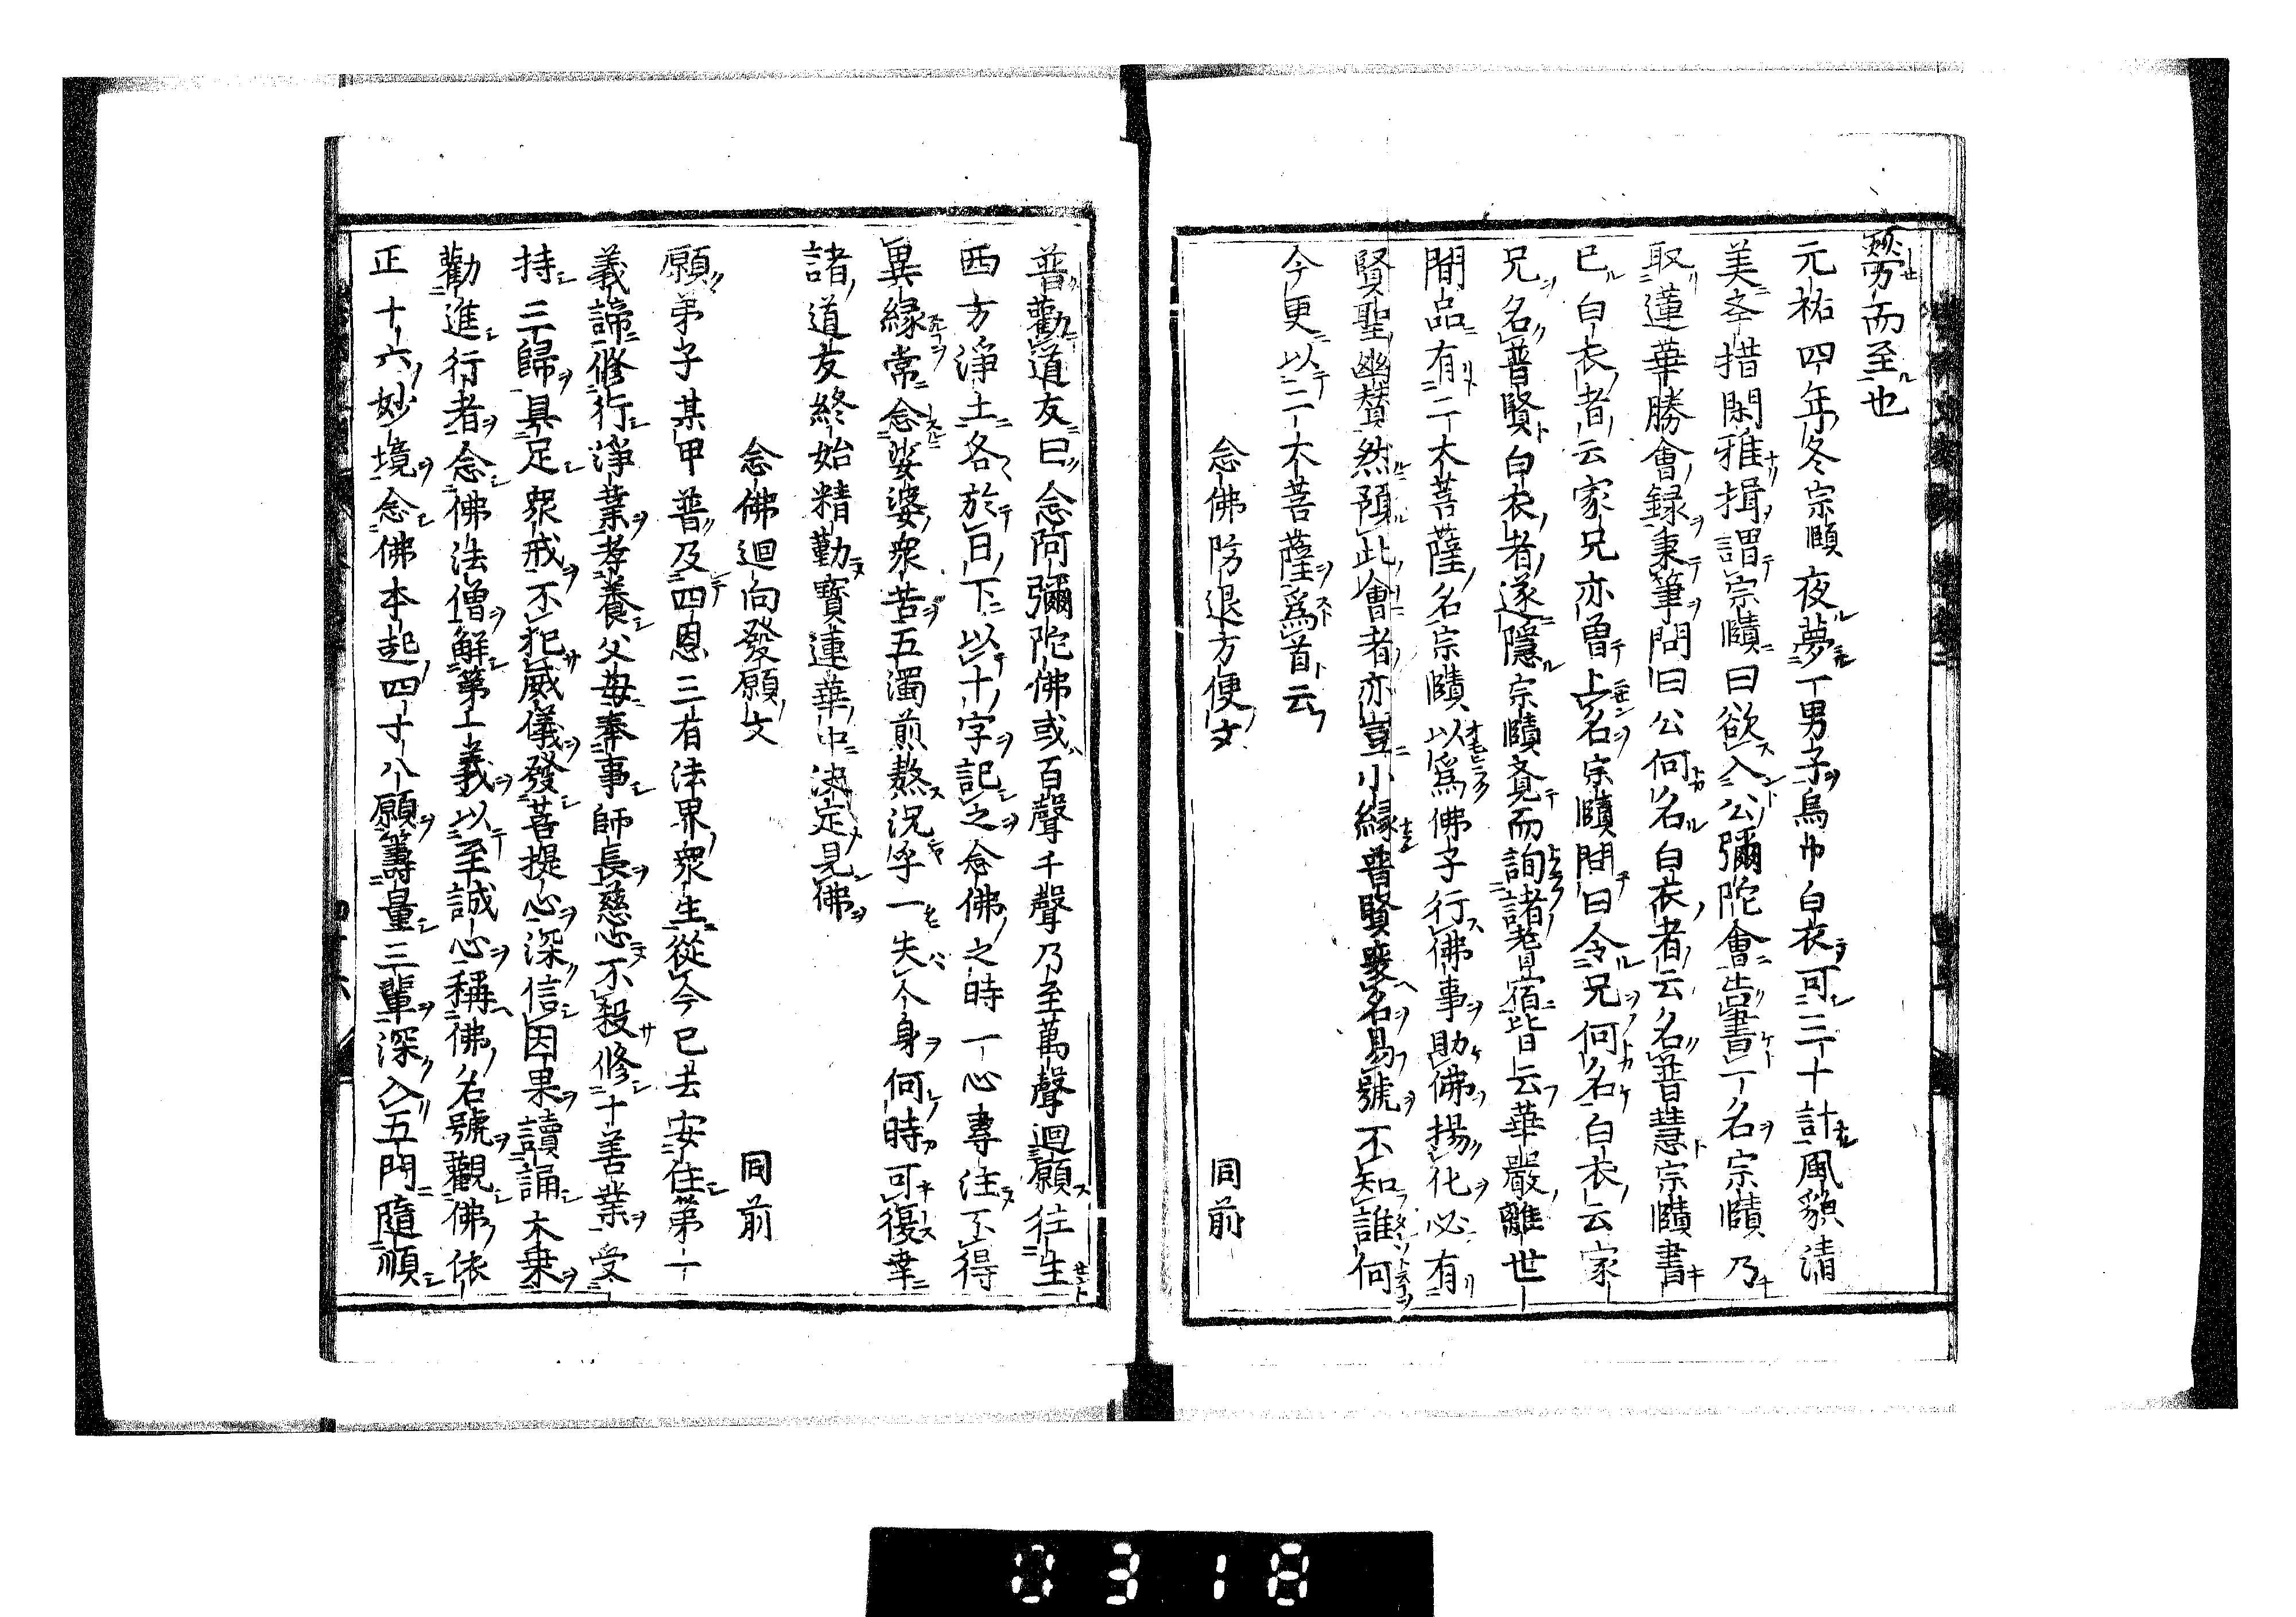 勞而至也
元祐四年冬宗賾夜夢一男子烏巾白衣可三十計風貌清
美容措閑雅揖謂宗賾曰欲入公彌陀會告書一名宗賾乃
取蓮華勝會録秉筆問曰公何名白衣者云名普慧宗賾書
已白衣者云家兄亦曾上名宗賾問曰令兄何名白衣云家
兄名普賢白衣者遂隱宗賾覺而詢諸耆宿皆云華嚴離世
間品有二大菩薩名宗賾以爲佛子行佛事助佛揚化必有
賢聖幽賛然預此會者亦豈小縁普賢變名易號不知誰何
今更以二大菩薩爲首云
念佛防退方便文 同前
普勸道友曰念阿彌陀佛或百聲千聲乃至萬聲迴願往生
西方淨土各於日下以十字記之念佛之時一心專注不得
異縁常念娑婆衆苦五濁煎熬況乎一失人身何時可復幸
諸道友終始精勤寳蓮華中決定見佛
念佛迴向發願文 同前
願弟子某甲普及四恩三有法界衆生從今已去安住第一
義諦修行淨業孝養父母奉事師長慈心不殺修十善業受
持三歸具足衆戒不犯威儀發菩提心深信因果讀誦大乗
勸進行者念佛法僧解第一義以至誠心稱佛名號觀佛依
正十六妙境念佛本起四十八願籌量三輩深入五門隨順
0318